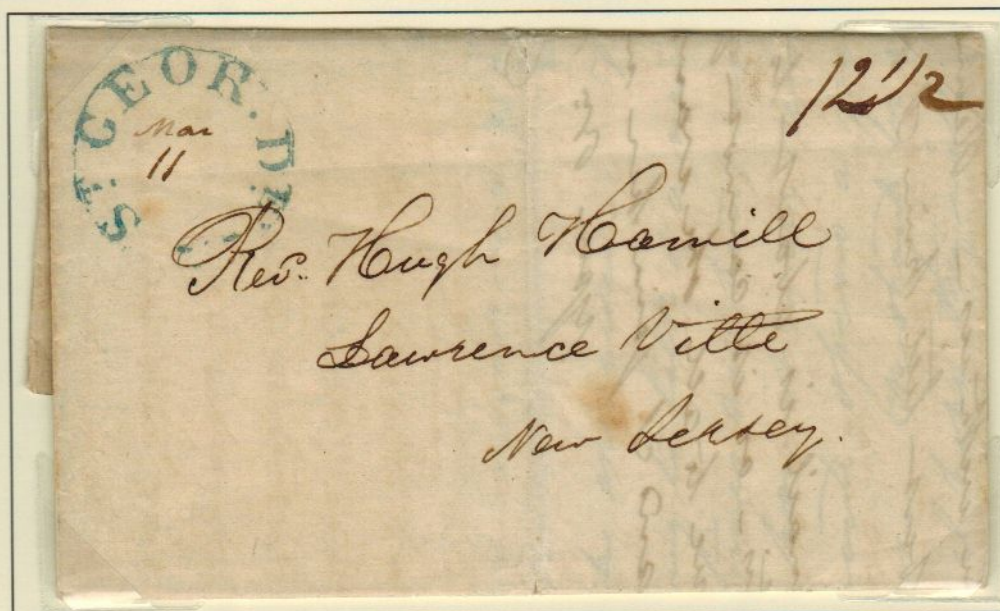 ST. GEOR. DEL.
Mar
11
12 1/2
Rev. Hugh Hamill
Lawrence Ville
New Jersey.